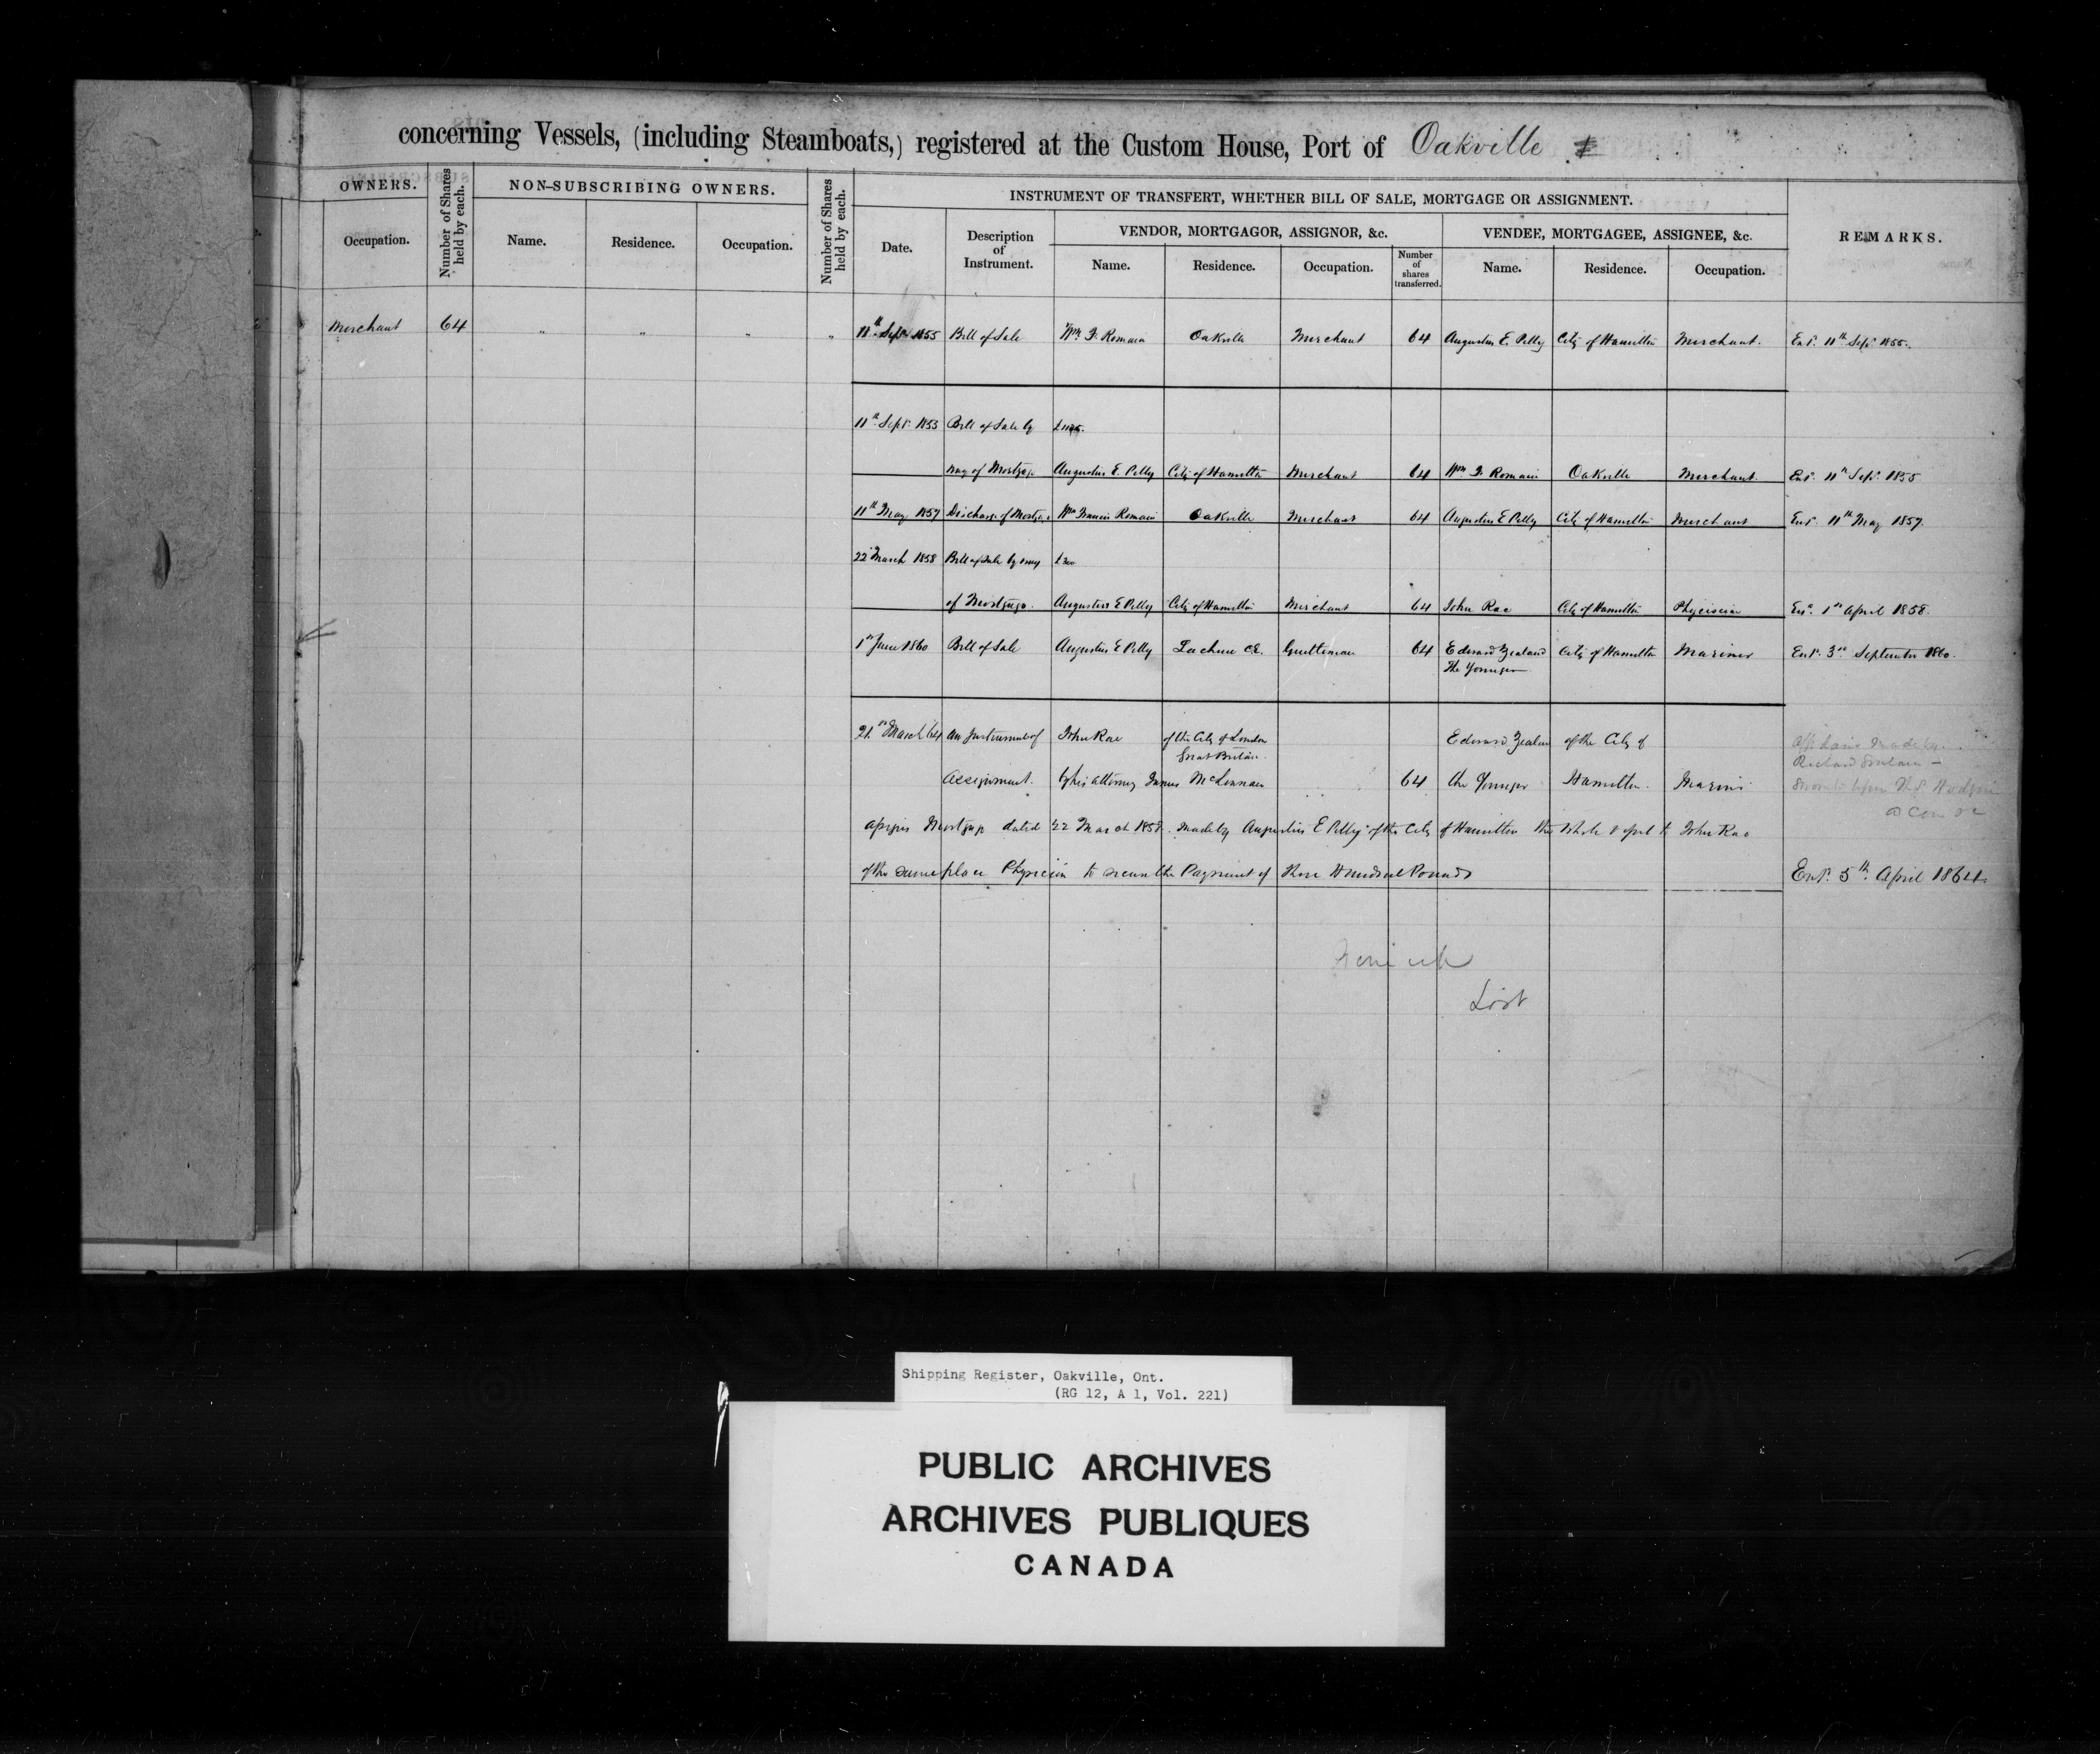 concerning Vessels, (including Steamboats,) registered at the Custom House, Port of Oakville
OWNERS.
Occupation.
Number of Shares held by each.
NON-SUBSCRIBING OWNERS.
Name. Residence. Occupation.
Number of Shares held by each.
INSTRUMENT OF TRANSFERT, WHETHER BILL OF SALE, MORTGAGE OR ASSIGNMENT.
Date.
Description of Instrument.
VENDOR, MORTGAGOR, ASSIGNOR, &c.
Name. Residence. Occupation.
Number of shares transferred.
VENDEE, MORTGAGEE, ASSIGNEE, &c.
Name. Residence. Occupation.
REMARKS.
Merchant 64 " " " " 11th Sept 1855 Bill of Sale Wm. F. Romain Oakville Merchant 64 Augustus E. Pelly City of Hamilton Merchant. Ent. 11th Sept. 1855.
11th Sept. 1853 Bill of Sale by
way of Mortgage Augustus E. Pelly City of Hamilton Merchant 64 Wm F. Romain Oakville Merchant. Ent. 11th Sept. 1855
11th May 1857 Discharge of Mortgage Wm Francis Romain Oakville Merchant 64 Augustus E Pelly City of Hamilton Merchant Ent. 11th May 1857.
22 March 1858 Bill of Sale by way £300
of Mortgage. Augustus E Pelly City of Hamilton Merchant 64 John Rae City of Hamilton Physician Ent. 1st April 1858.
1st June 1860 Bill of Sale Augustus E Pelly Lachine C.E. Gentleman 64 Edward Zealand City of Hamilton Mariner Ent. 3rd September 1860.
The Younger
21st March 64 An Instrument of John Rae of the City of London Edward Zealand of the City of
Great Britain
Assignment. by his attorney James McLennan 64 the Younger Hamilton. Marine
Richard
assigns Mortgage dated 22 March 1858. made by Augustus E Pelly of the City of Hamilton the to John Rae
of the same place Physician to secure the Payment of Three Hundred Pounds Ent. 5th April 1864.
Lost
Shipping Register, Oakville, Ont.
(RG 12, A 1, Vol. 221)
PUBLIC ARCHIVES
ARCHIVES PUBLIQUES
CANADA